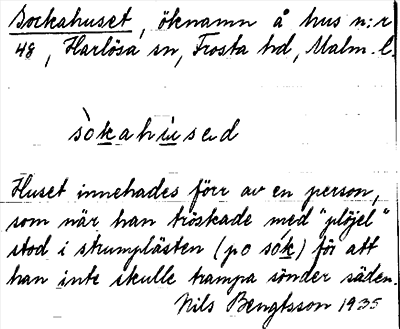 Sockahuset, öknamn å hus n:r
48, Harlösa sn, Frosta hd, Malm. l.
sòkahúsed
Huset innehades förr av en person,
som när han tröskade med "plöjel"
stod i strumplästen (po sók) för att
han inte skulle trampa sönder säden.
Nils Bengtsson 1935